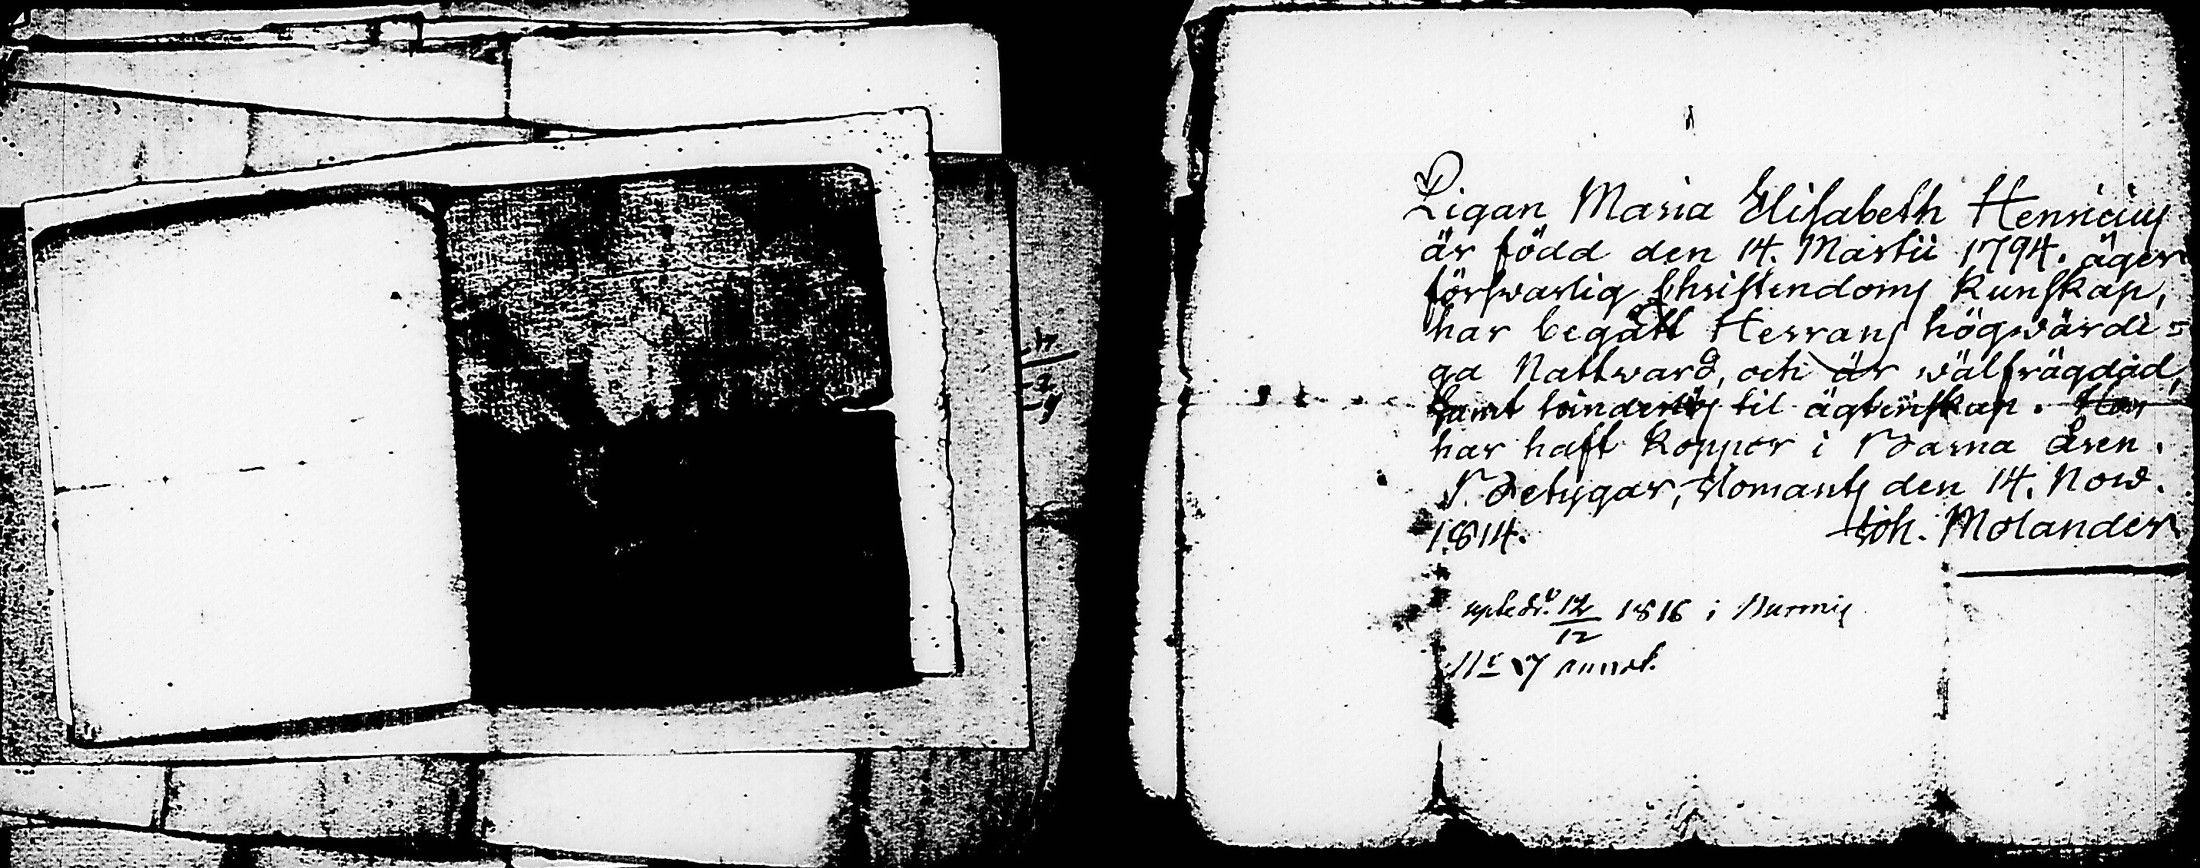 Pigan Maria Elisabeth Henricius
är född den 14. Martii 1794. äger
försvarlig Christendoms kunskap,
har begått Herrans högwärdi=
ga Nattvard, och är wälfrägdad,
samt hinderlös til ägtenskap.
har haft koppor i Barna åren.
Betygar, Ilomants den 14. Nov.
1814. Joh. Molander
12/12 1816 i Nurmis
No 7